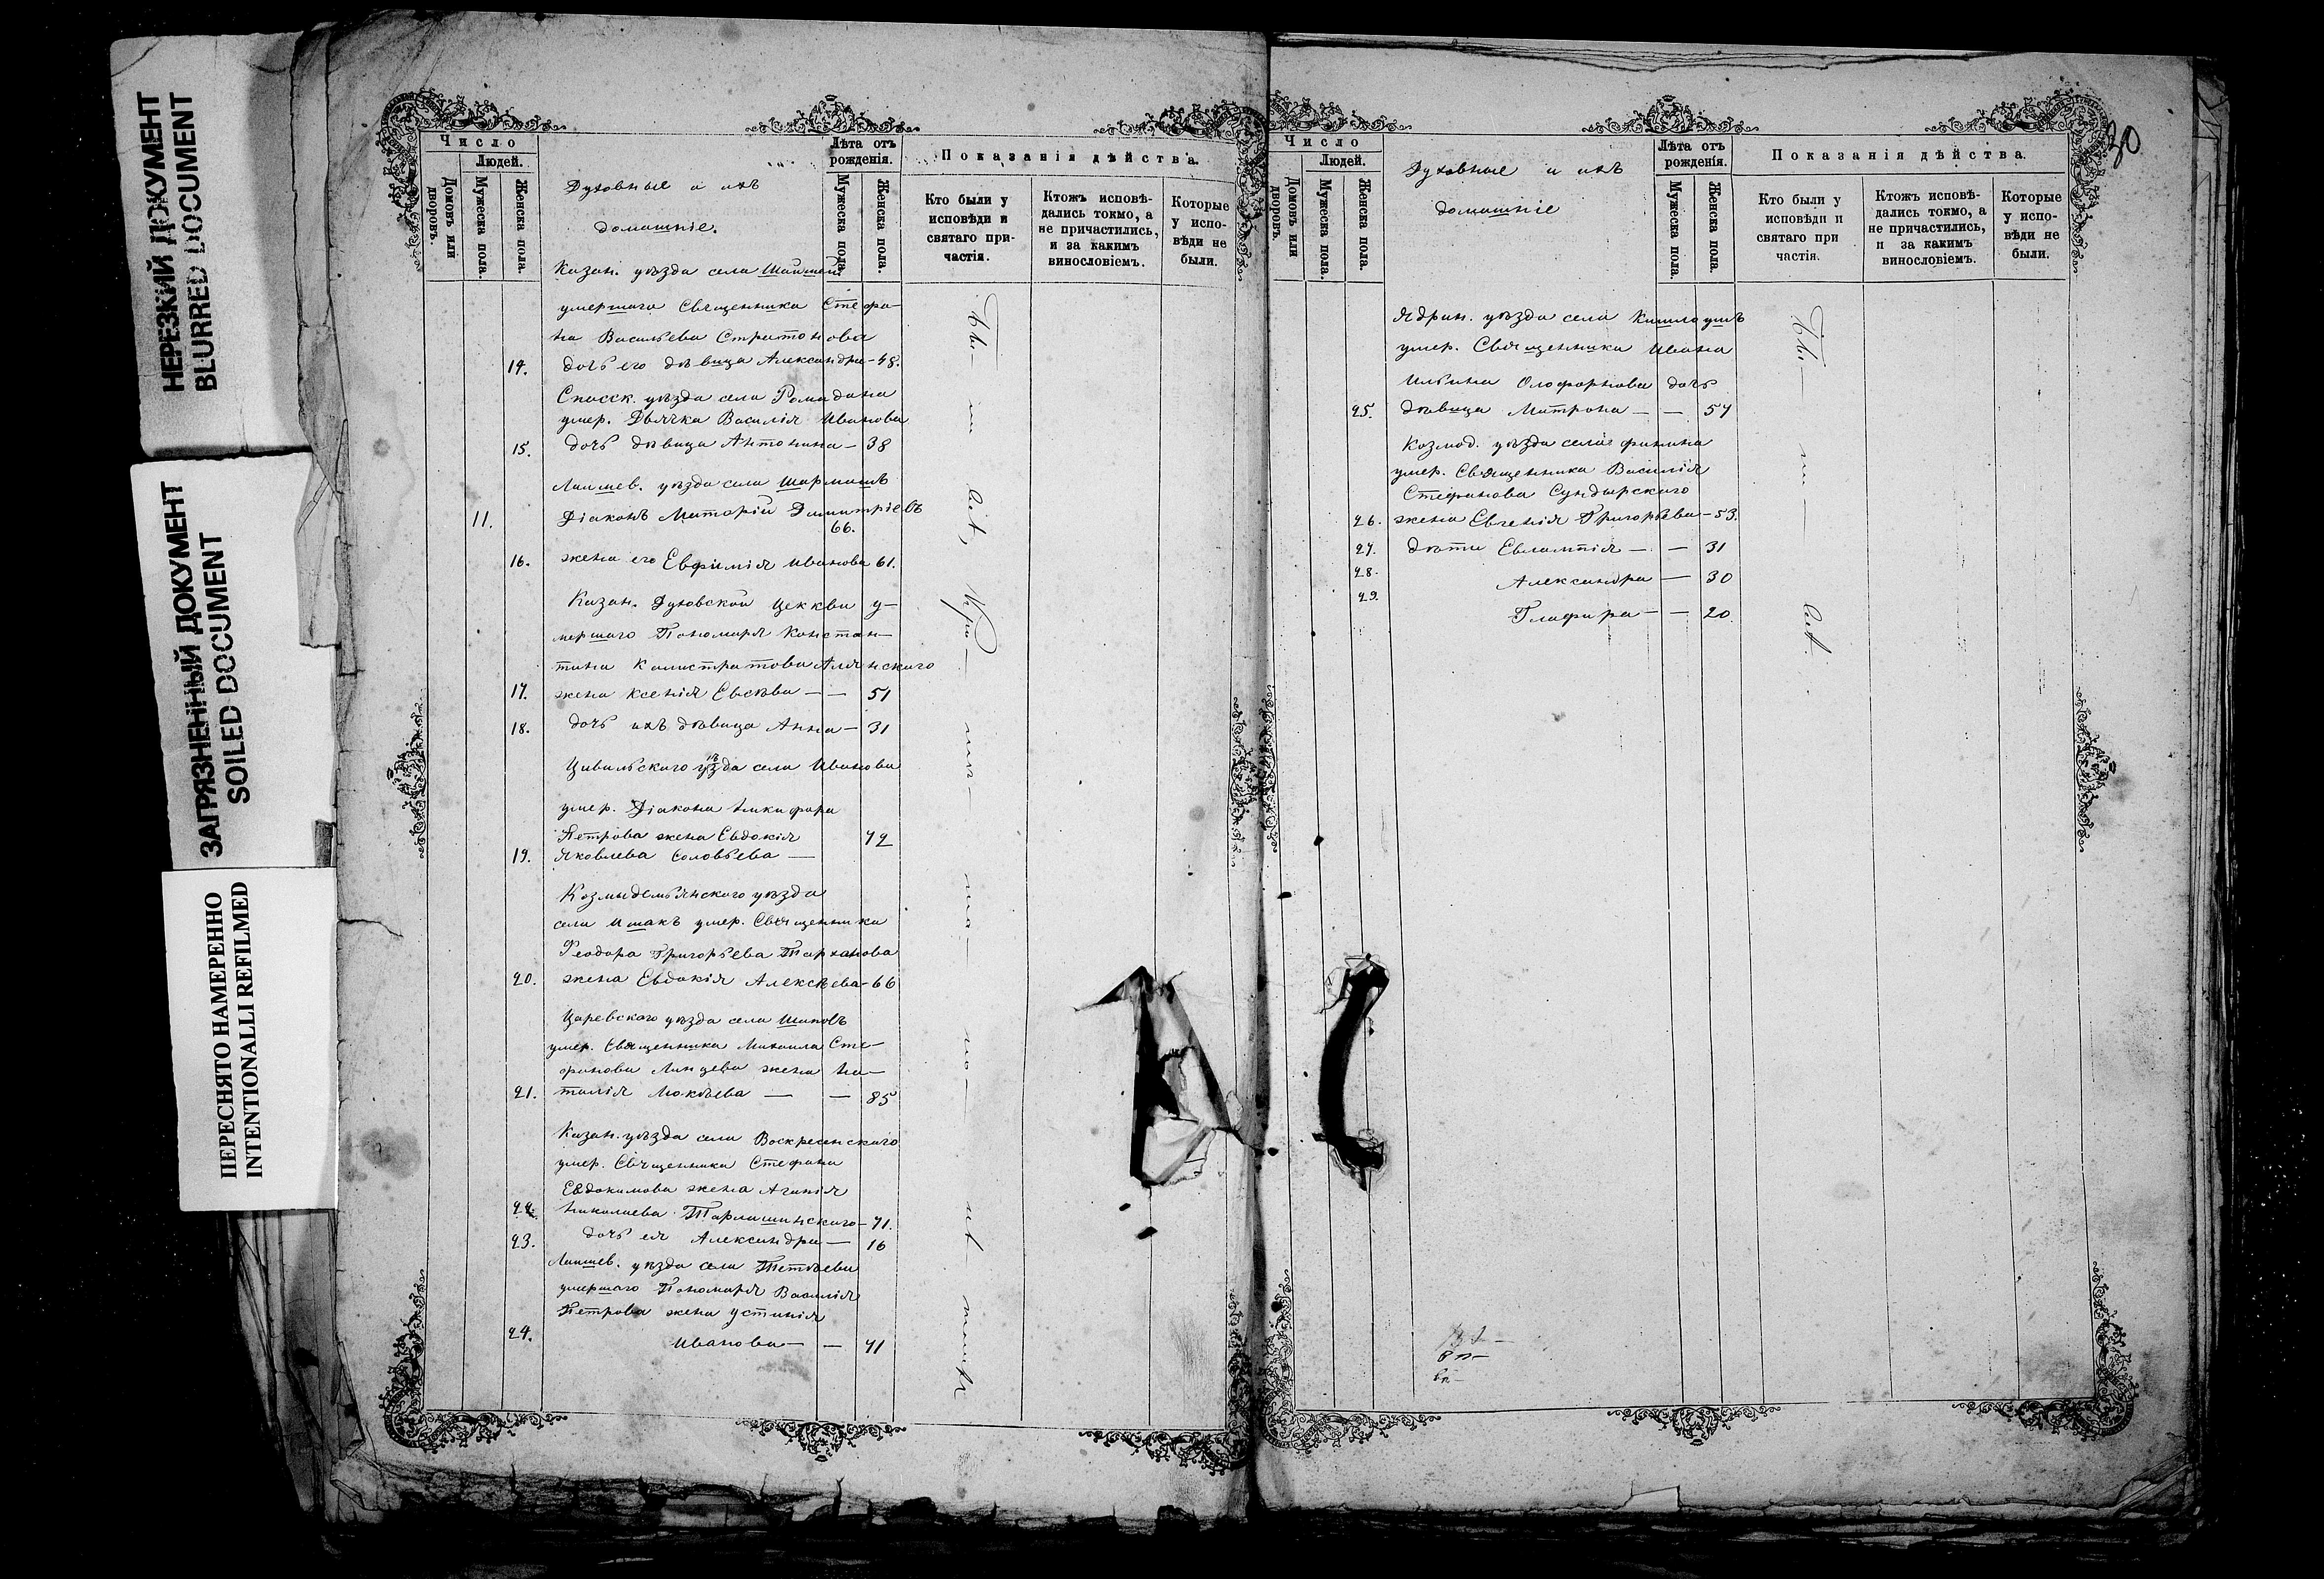 НЕРЕЗКИЙ ДОКУМЕНТ
BLURRED DOCUMENT
ЗАГРЯЗНЕННЫЙ ДОКУМЕНТ
SOILED DOCUMENT
ПЕРЕСНЯТО НАМЕРЕННО
INTENTIONALLI REFILMED
Число
Людей.
Домовъ или дворовъ.
Мужеска пола.
Женска пола.
Духовные и ихъ
домашніе.
Лѣта отъ рожденія.
Мужеска пола.
Женска пола.
Показанія дѣйства.
Кто были у исповѣди и святаго причастія.
Ктожъ исповѣдались токмо, а не причастились, и за какимъ винословіемъ.
Которые у исповѣди не были.
Казан. уѣзда села
умершаго Священника Стефа-
на Васильева Стратонова
14. дочь его дѣвица Александра – 48.
Спасск. уѣзда села Ромадана
умер. Дьячка Василія Иванова
15. дочь дѣвица Антонина – 38
Лаишев. уѣзда села Шармашъ
11. Діаконъ Димитріевъ
66.
16. жена его Евфимія Иванова 61.
Казан. Духовской Цеккви у-
мершаго Пономаря Констан-
тина Калистратова
17. жена Ксенія Евсѣева – – 51
18. дочь ихъ дѣвица Анна – 31
Цивильскаго уѣзда села Иванова
умер. Діакона Никифора
Петрова жена Евдокія 72
19. Яковлева Соловьева –
Козмодемьянскаго уѣзда
села Ишакъ умер. Священника
Феодора Григорьева Тарханова
20. жена Евдокія Алексѣева – 66
Царевск. уѣзда села
умер. Священника Михаила Сте-
фанова жена На-
21. талія Мокѣева – – 85
Казан. уѣзда села Воскресенскаго
умер. Священника Стефана
Евдокимова жена Агапія
22. Николаева – 71.
23. дочь ея Александра – 16
Лаишев. уѣзда села Тетѣева
умершаго Пономаря Василія
Петрова жена Устинія
24. Иванова – – 71
30
Число
Людей.
Домовъ или дворовъ.
Мужеска пола.
Женска пола.
Духовные и ихъ
домашніе
Лѣта отъ рожденія.
Мужеска пола.
Женска пола.
Показанія дѣйства.
Кто были у исповѣди и святаго при частія.
Ктожъ исповѣдались токмо, а не причастились, и за какимъ винословіемъ.
Которые у исповѣди не были.
Ядрин. уѣзда села
умер. Священника Ивана
Ильина Олофорнова дочь
25. дѣвица Матрона – – 57
Козмод. уѣзда села
умер. Священника Василія
Стефанова Сундырскаго
26. жена Евгенія Григорьева – 53.
27. дѣти Евлампія – – 31
28. Александра – 30
29. Глафира – – 20.